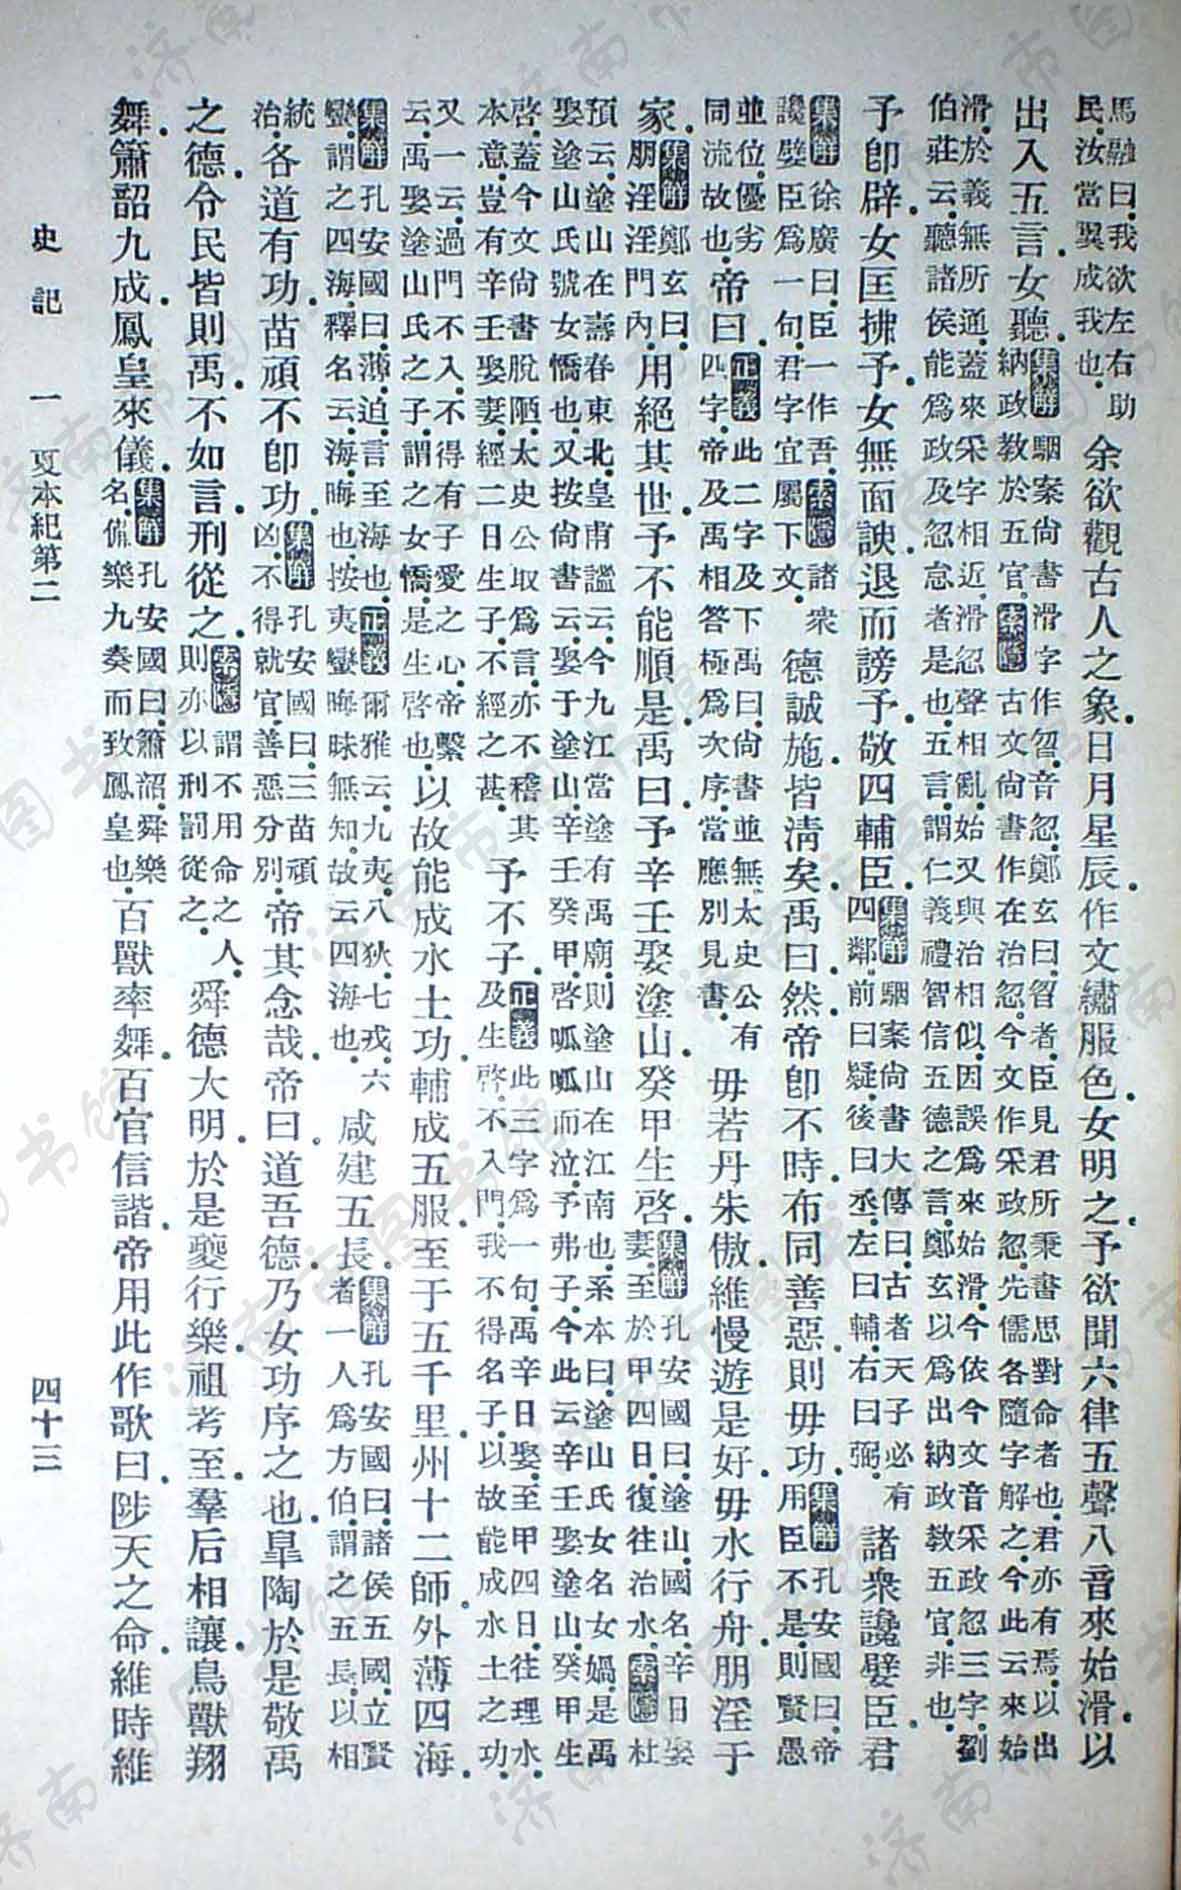 馬融曰.我欲左右助民.汝當翼成我也.余欲觀古人之象.日月星辰.作文繡服色.女明之.予欲聞六律五聲八音來始滑.以
出入五言.女聽.集解駰案尚書滑字作曶.音忽.鄭玄曰.曶者.臣見君所秉.書思對命者也.君亦有焉.以出納政教於五官.索隱古文尚書作在治忽.今文作采政忽.先儒各隨字解之.今此云來始
滑.於義無所通.蓋來采字相近.滑忽聲相亂.始又與治相似.因誤爲來始滑.今依今文音采政忽三字.劉伯莊云.聽諸侯能爲政及忽怠者.是也.五言.謂仁義禮智信五德之言.鄭玄以爲出納政教五官.非也.
予即辟.女匡拂予.女無面諛.退而謗予.敬四輔臣.集解駰案尚書大傳曰.古者天子必有四鄰.前曰疑.後曰丞.左曰輔.右曰弼.諸衆讒嬖臣.君
集解徐廣曰.臣.一作吾.索隱諸衆讒嬖臣爲一句.君字宜屬下文.德誠施.皆清矣.禹曰.然.帝即不時.布同善惡.則毋功.集解孔安國曰.帝用臣不是.則賢愚
並位.優劣同流故也.帝曰.正義此二字及下禹曰.尚書並無.太史公有四字.帝及禹相答極爲次序.當應別見書.毋若丹朱傲.維慢遊是好.毋水行舟.朋淫于
家.集解鄭玄曰.朋淫.淫門內.用絕其世.予不能順是.禹曰.予辛壬娶塗山.癸甲生啓.集解孔安國曰.塗山.國名.辛日娶妻.至於甲四日.復往治水.索隱杜
預云.塗山在壽春東北.皇甫謐云.今九江當塗有禹廟.則塗山在江南也.系本曰.塗山氏女名女媧.是禹娶塗山氏號女憍也.又按尚書云.娶于塗山.辛壬癸甲.啓呱呱而泣.予弗子.今此云.辛壬娶塗山.癸甲生
啓.蓋今文尚書脫陋.太史公取爲言.亦不稽其本意.豈有辛壬娶妻.經二日生子.不經之甚.予不子.正義此三字爲一句.禹辛日娶.至甲四日.往理水.及生啓.不入門.我不得名子.以故能成水土之功.
又一云.過門不入.不得有子愛之心.帝繫云.禹娶塗山氏之子.謂之女憍.是生啓也.以故能成水土功.輔成五服.至于五千里.州十二師.外薄四海.
集解孔安國曰.薄.迫.言至海也.正義爾雅云.九夷.八狄.七戎.六蠻.謂之四海.釋名云.海.晦也.按夷蠻晦昧無知.故云四海也.咸建五長.集解孔安國曰.諸侯五國.立賢者一人爲方伯.謂之五長.以相
統治.各道有功.苗頑不即功.集解孔安國曰.三苗頑凶.不得就官.善惡分別.帝其念哉.帝曰.道吾德.乃女功序之也.皐陶於是敬禹
之德.令民皆則禹.不如言.刑從之.索隱謂不用命之人.則亦以刑罰從之.舜德大明.於是夔行樂.祖考至.羣后相讓.鳥獸翔
舞.簫韶九成.鳳皇來儀.集解孔安國曰.簫韶.舜樂名.備樂九奏而致鳳皇也.百獸率舞.百官信諧.帝用此作歌曰.陟天之命.維時維
史記 一 夏本紀第二 四十三
济南市图书馆